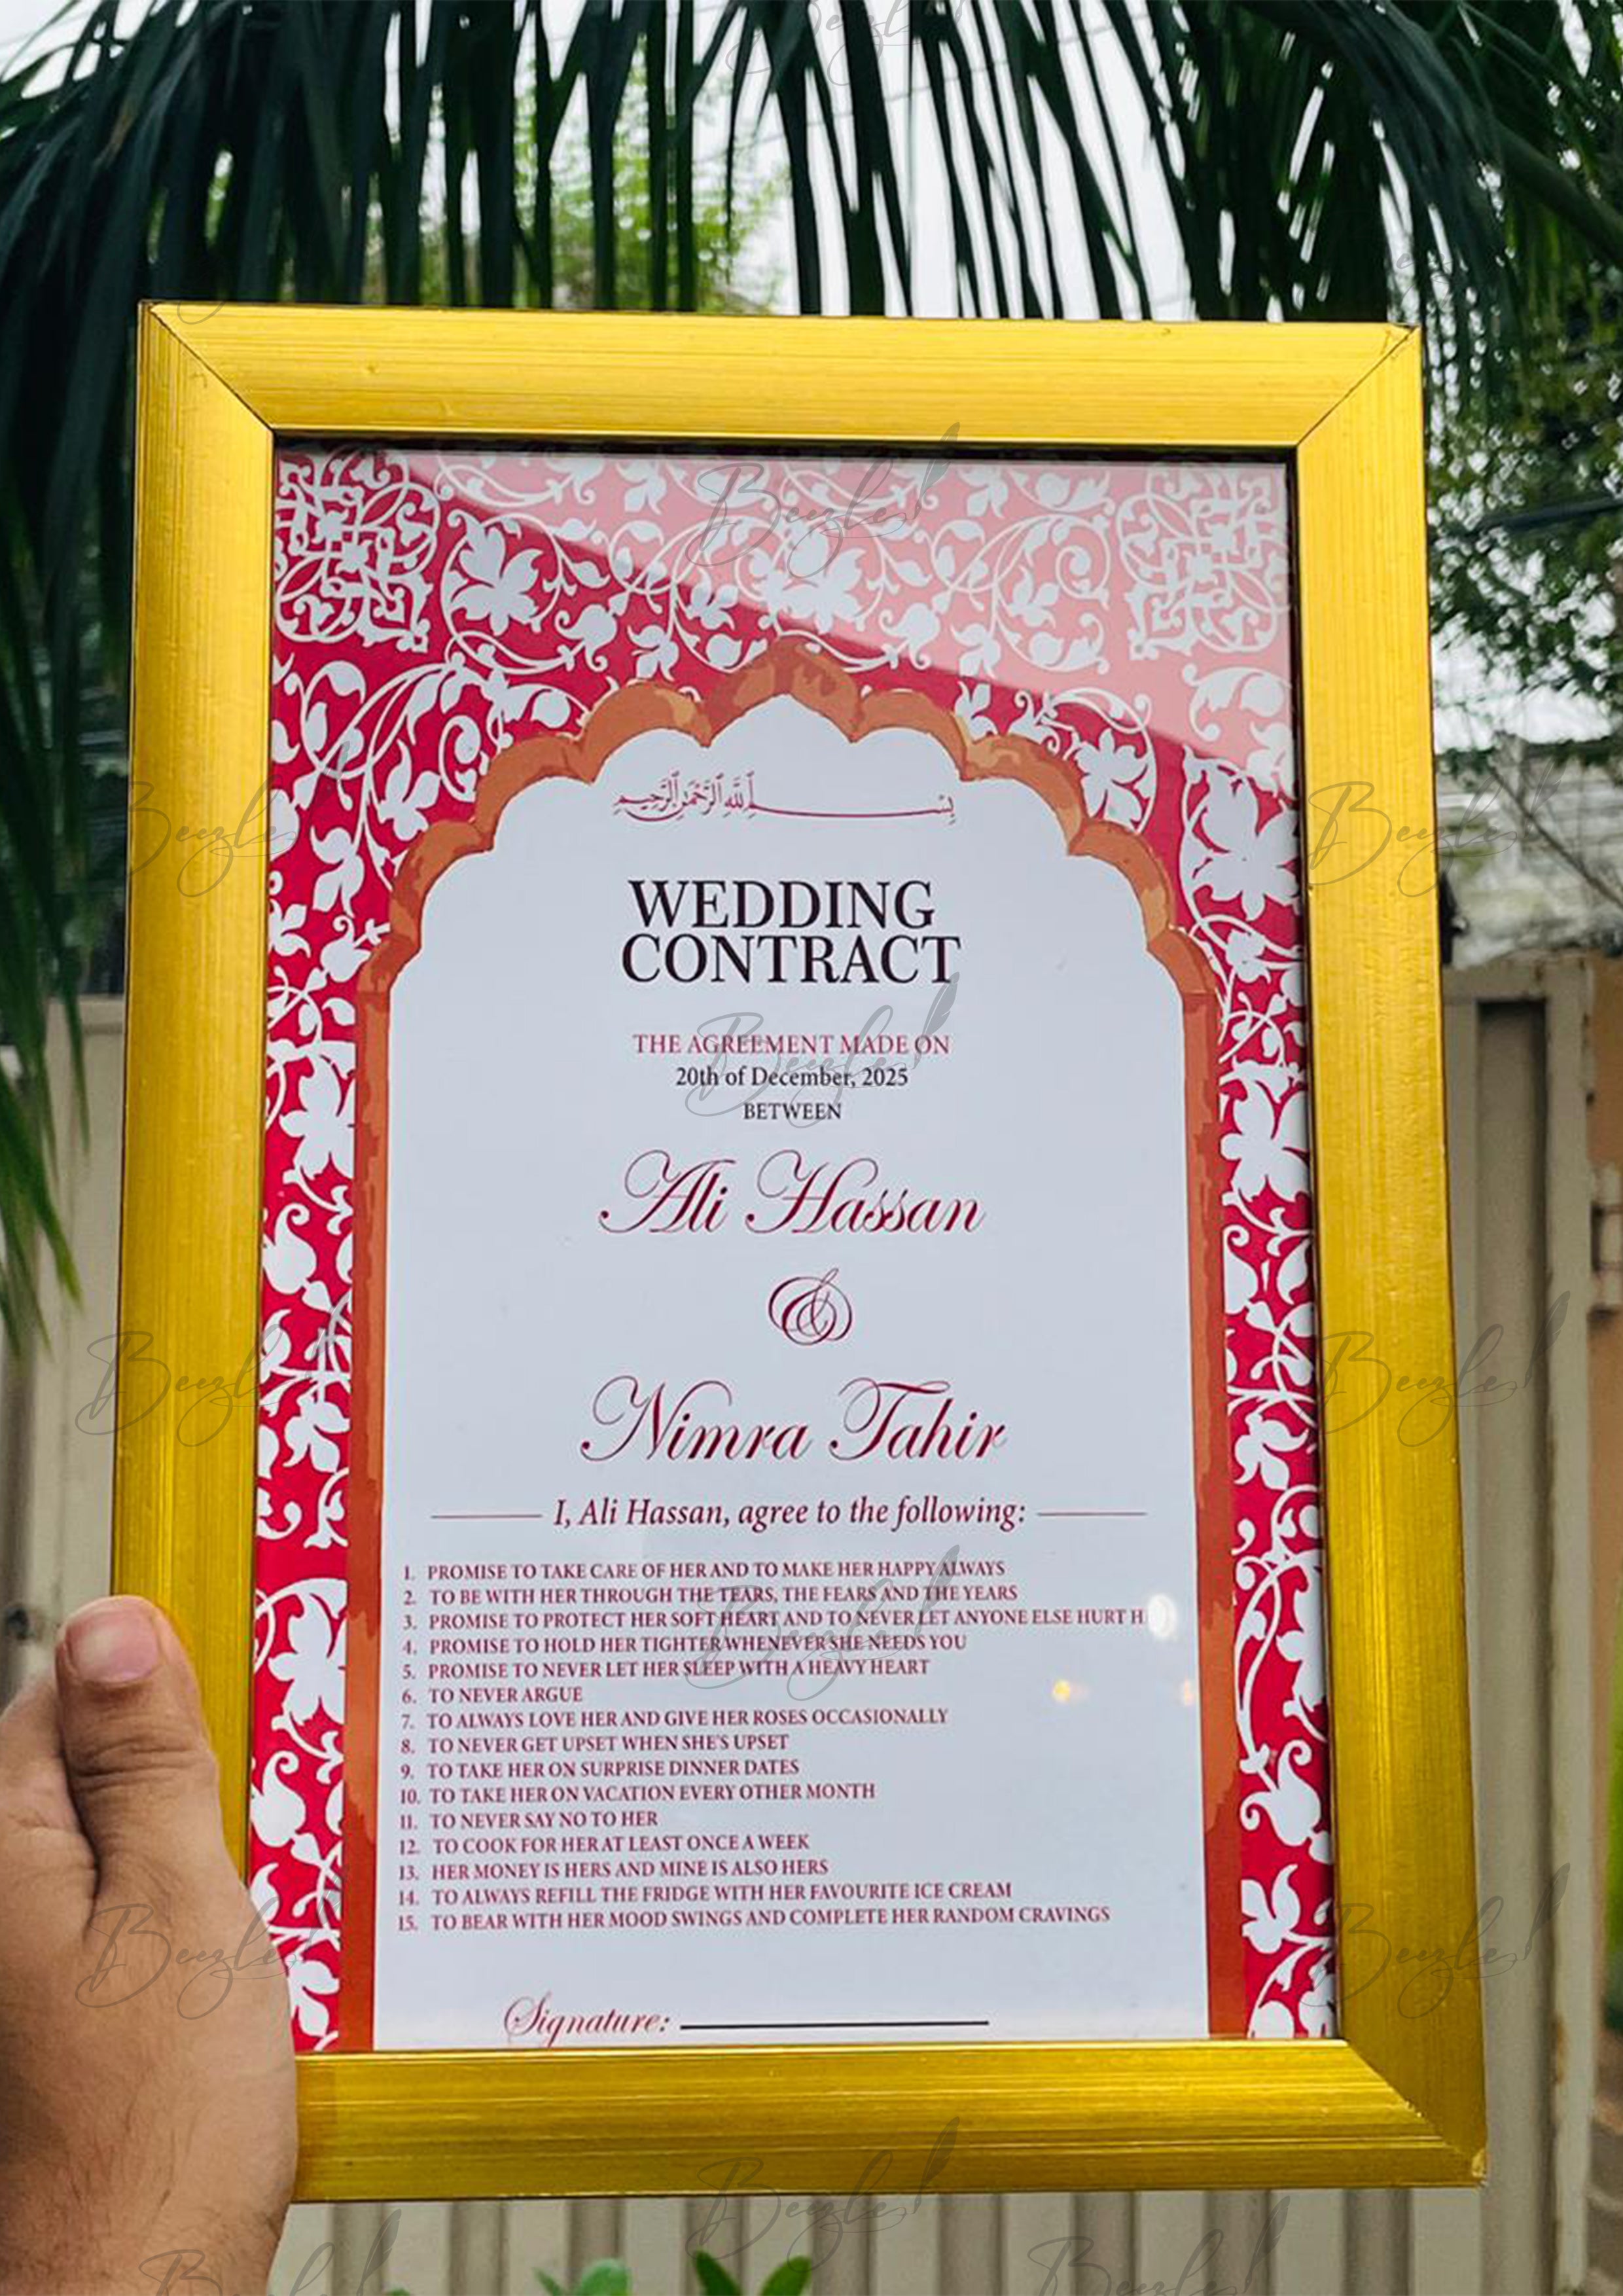 بسم الله الرحمن الرحيم
WEDDING
CONTRACT
THE AGREEMENT MADE ON
20th of December, 2025
BETWEEN
Ali Hassan
&
Nimra Tahir
I, Ali Hassan, agree to the following:
1. PROMISE TO TAKE CARE OF HER AND TO MAKE HER HAPPY ALWAYS
2. TO BE WITH HER THROUGH THE TEARS, THE FEARS AND THE YEARS
3. PROMISE TO PROTECT HER SOFT HEART AND TO NEVER LET ANYONE ELSE HURT H
4. PROMISE TO HOLD HER TIGHTER WHENEVER SHE NEEDS YOU
5. PROMISE TO NEVER LET HER SLEEP WITH A HEAVY HEART
6. TO NEVER ARGUE
7. TO ALWAYS LOVE HER AND GIVE HER ROSES OCCASIONALLY
8. TO NEVER GET UPSET WHEN SHE'S UPSET
9. TO TAKE HER ON SURPRISE DINNER DATES
10. TO TAKE HER ON VACATION EVERY OTHER MONTH
11. TO NEVER SAY NO TO HER
12. TO COOK FOR HER AT LEAST ONCE A WEEK
13. HER MONEY IS HERS AND MINE IS ALSO HERS
14. TO ALWAYS REFILL THE FRIDGE WITH HER FAVOURITE ICE CREAM
15. TO BEAR WITH HER MOOD SWINGS AND COMPLETE HER RANDOM CRAVINGS
Signature: